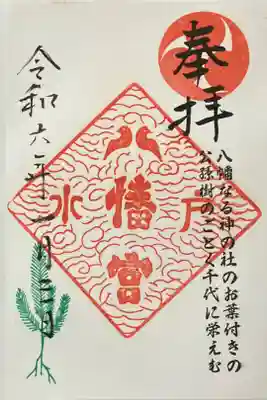 奉拝
八幡なる神の社のお葉付きの
公孫樹のごとく千代に栄えむ
水戸
八幡宮
令和六年一月三日